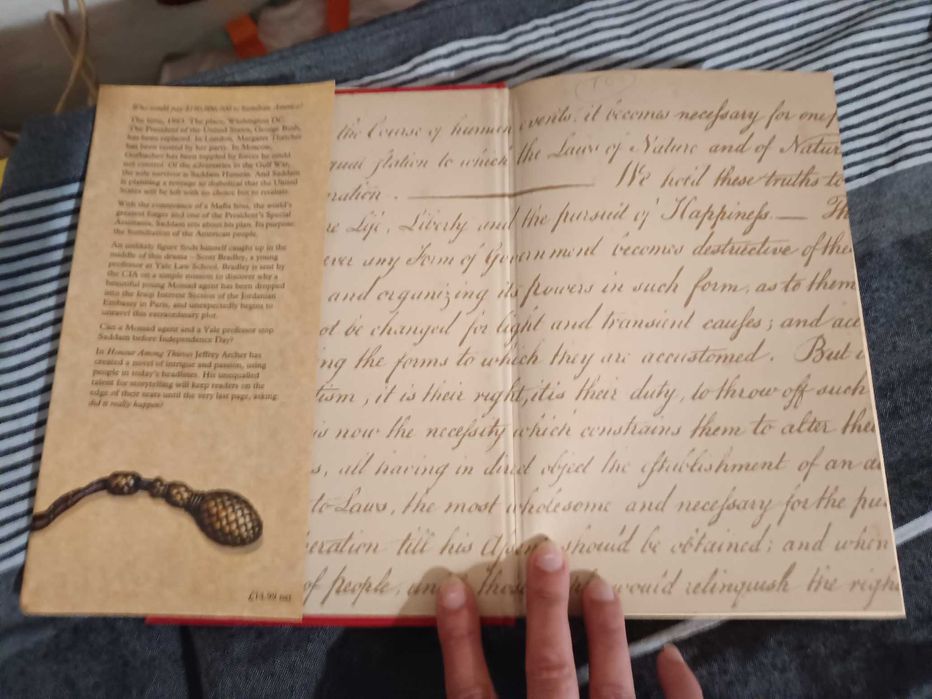 Who would pay $100,000,000 to humiliate America?
The time, 1993. The place, Washington DC.
The President of the United States, George Bush,
has been replaced. In London, Margaret Thatcher
has been ousted by her party. In Moscow,
Gorbachev has been toppled by forces he could
not control. Of the adversaries in the Gulf War,
the sole survivor is Saddam Hussein. And Saddam
is planning a revenge so diabolical that the United
States will be left with no choice but to retaliate.
With the connivance of a Mafia boss, the world's
greatest forger and one of the President's Special
Assistants, Saddam sets about his plan. Its purpose:
the humiliation of the American people.
An unlikely figure finds himself caught up in the
middle of this drama – Scott Bradley, a young
professor at Yale Law School. Bradley is sent by
the CIA on a simple mission to discover why a
beautiful young Mossad agent has been dropped
into the Iraqi Interest Section of the Jordanian
Embassy in Paris, and unexpectedly begins to
unravel this extraordinary plot.
Can a Mossad agent and a Yale professor stop
Saddam before Independence Day?
In Honour Among Thieves Jeffrey Archer has
created a novel of intrigue and passion, using
people in today's headlines. His unequalled
talent for storytelling will keep readers on the
edge of their seats until the very last page, asking:
did it really happen?
£14.99 net
the Course of human events, it becomes necessary for one
station to which the Laws of Nature and of
We hold these truths to
Life, Liberty and the pursuit of Happiness.
any Form of Government becomes destructive of
and organizing its powers in such form, as to them
be changed for light and transient causes; and
the forms to which they are accustomed. But
it is their right, it is their duty, to throw off such
now the necessity which constrains them to alter
all having in direct object the establishment of an
to Laws, the most wholesome and necessary for the
till his should be obtained; and when
of people, would relinquish the